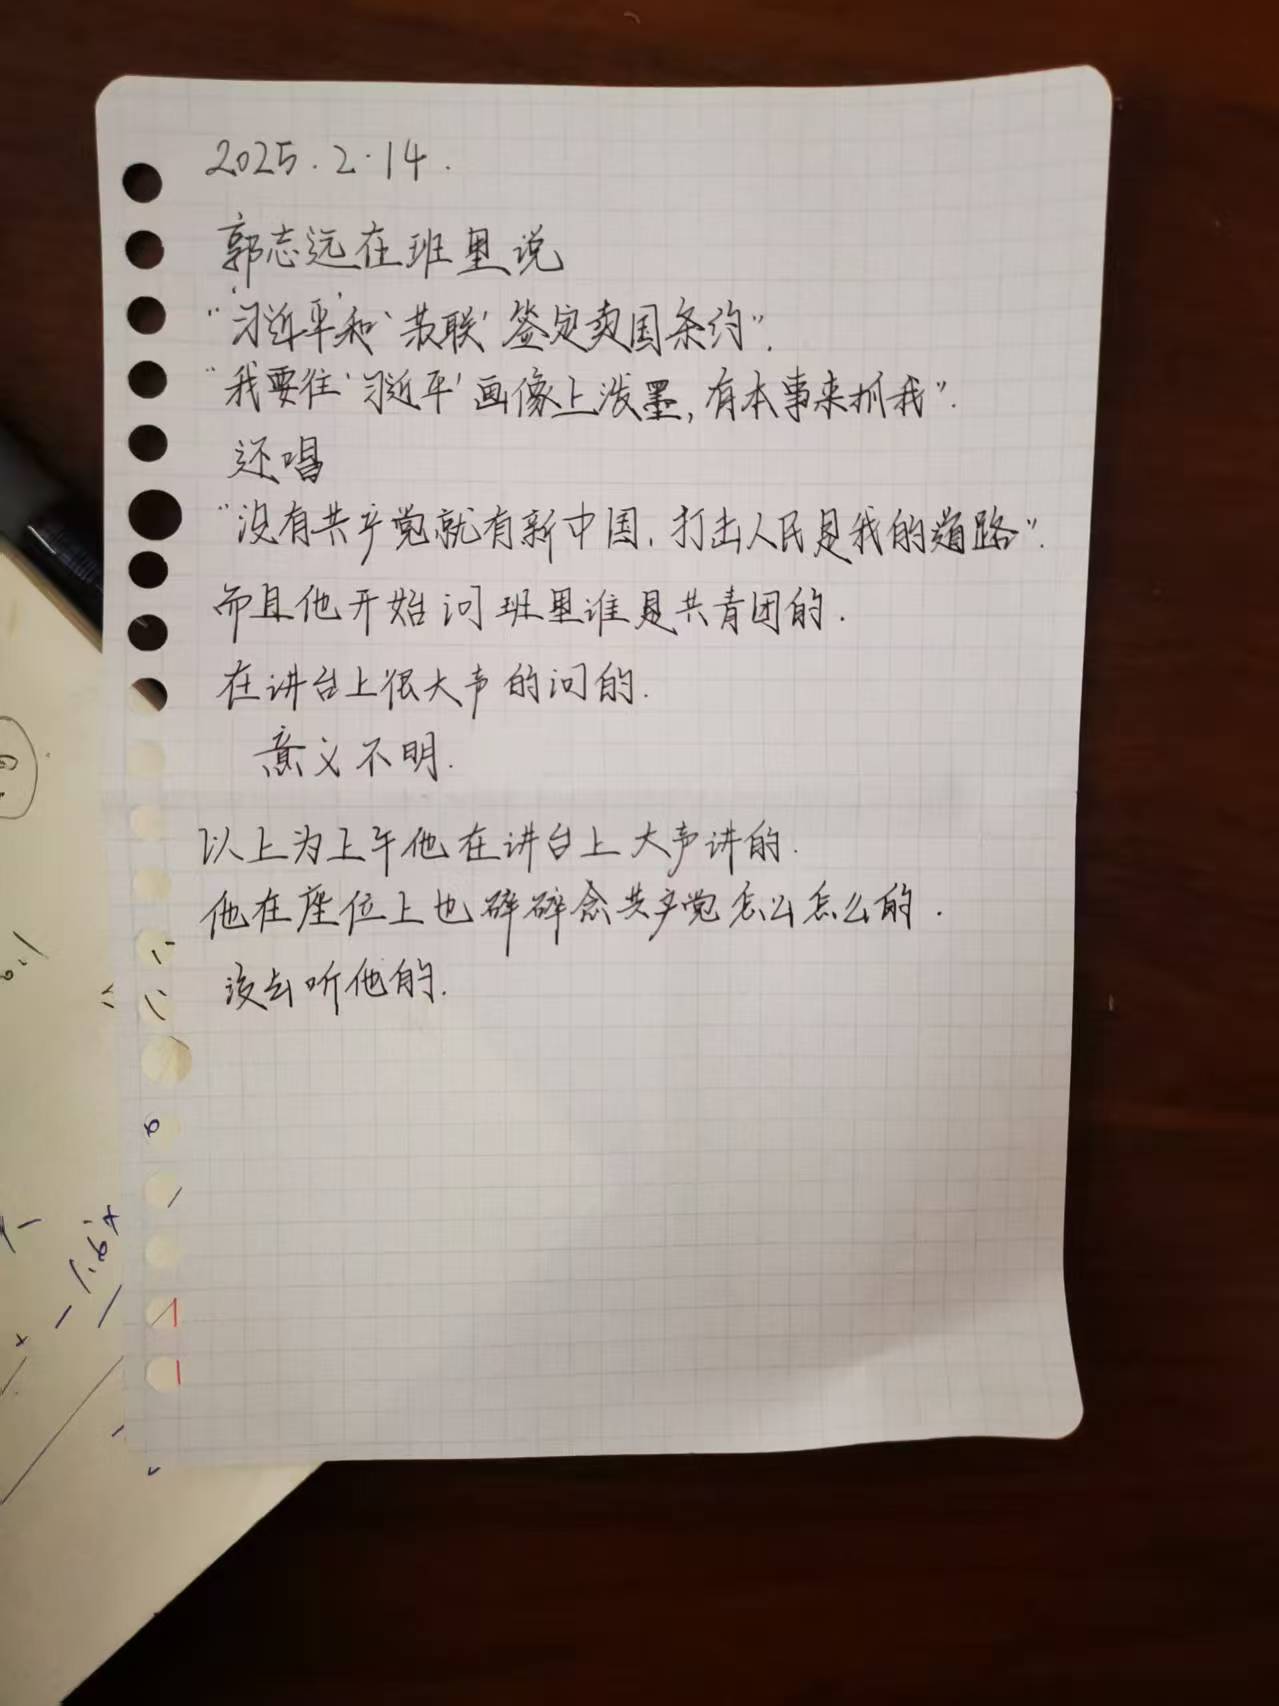 2025.2.14.
郭志远在班里说
“‘习近平’和‘苏联’签定卖国条约”.
“我要往‘习近平’画像上泼墨,有本事来抓我”.
还唱
“没有共产党就有新中国,打击人民是我的道路”.
而且他开始问班里谁是共青团的.
在讲台上很大声的问的.
意义不明.
以上为上午他在讲台上大声讲的.
他在座位上也碎碎念共产党怎么怎么的.
没去听他的.